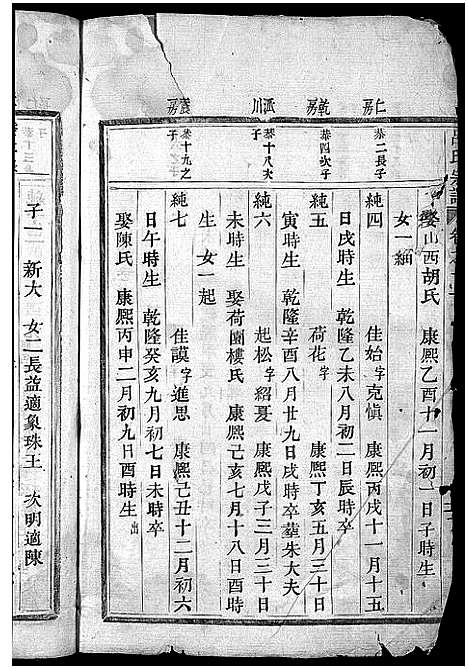 呂氏宗譜
娶山西胡氏　康熙乙酉十一月初一日子時生
女一緬
仁房
恭二長子
純四　佳始字克愼　康熙丙戌十一月十五
日戌時生　乾隆乙未八月初二日辰時卒
乾房
恭四次子
純五　荷花字　康熙丁亥五月三十日
寅時生　乾隆辛酉八月廿九日戌時卒葬朱大夫
派川
恭十八次子
純六　起松字紹夏　康熙戊子三月三十日
未時生　娶荷園樓氏　康熙己亥七月十八日酉時
生　女一起
房
恭十九之子
純七　佳謨字進思　康熙己丑十二月初六
日午時生　乾隆癸亥九月初七日未時卒
娶陳氏　康熙丙申二月初九日酉時生出
子一　新大　女二長益適象珠王　次明適陳